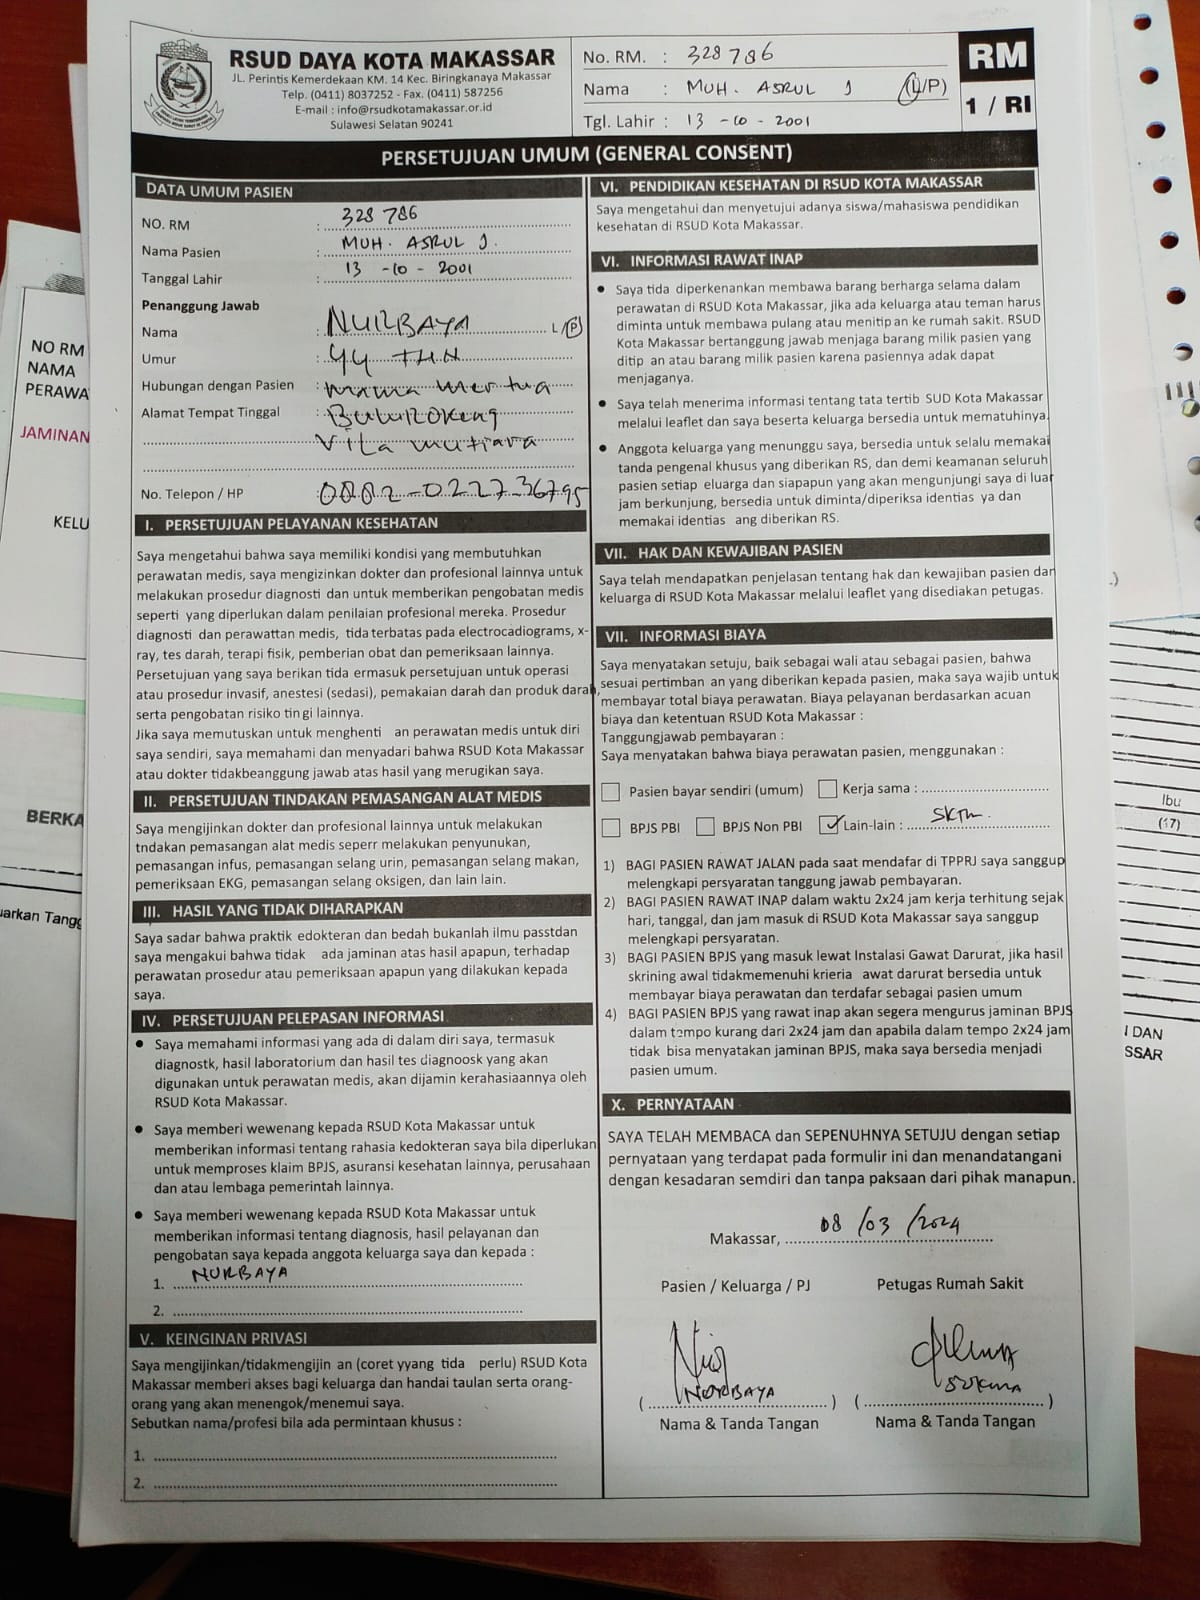 RSUD DAYA KOTA MAKASSAR
JL. Perintis Kemerdekaan KM. 14 Kec. Biringkanaya Makassar
Telp. (0411) 8037252 - Fax. (0411) 587256
E-mail : info@rsudkotamakassar.or.id
Sulawesi Selatan 90241
No. RM. : 328786
Nama : MUH. ASRUL J (L/P)
Tgl. Lahir : 13 -10 - 2001
RM
1 / RI
PERSETUJUAN UMUM (GENERAL CONSENT)
DATA UMUM PASIEN
NO. RM : 328 786
Nama Pasien : MUH. ASRUL J.
Tanggal Lahir : 13 -10 - 2001
Penanggung Jawab
Nama : NURBAYA L/P
Umur : 44 THN
Hubungan dengan Pasien : mama mertua
Alamat Tempat Tinggal : Bulurokeng
Vila mutiara
No. Telepon / HP : 0882-022736795
I. PERSETUJUAN PELAYANAN KESEHATAN
Saya mengetahui bahwa saya memiliki kondisi yang membutuhkan
perawatan medis, saya mengizinkan dokter dan profesional lainnya untuk
melakukan prosedur diagnosti dan untuk memberikan pengobatan medis
seperti yang diperlukan dalam penilaian profesional mereka. Prosedur
diagnosti dan perawattan medis, tida terbatas pada electrocadiograms, x-
ray, tes darah, terapi fisik, pemberian obat dan pemeriksaan lainnya.
Persetujuan yang saya berikan tida ermasuk persetujuan untuk operasi
atau prosedur invasif, anestesi (sedasi), pemakaian darah dan produk darah,
serta pengobatan risiko tin gi lainnya.
Jika saya memutuskan untuk menghenti an perawatan medis untuk diri
saya sendiri, saya memahami dan menyadari bahwa RSUD Kota Makassar
atau dokter tidakbeanggung jawab atas hasil yang merugikan saya.
II. PERSETUJUAN TINDAKAN PEMASANGAN ALAT MEDIS
Saya mengijinkan dokter dan profesional lainnya untuk melakukan
tndakan pemasangan alat medis seperr melakukan penyunukan,
pemasangan infus, pemasangan selang urin, pemasangan selang makan,
pemeriksaan EKG, pemasangan selang oksigen, dan lain lain.
III. HASIL YANG TIDAK DIHARAPKAN
Saya sadar bahwa praktik edokteran dan bedah bukanlah ilmu passtdan
saya mengakui bahwa tidak ada jaminan atas hasil apapun, terhadap
perawatan prosedur atau pemeriksaan apapun yang dilakukan kepada
saya.
IV. PERSETUJUAN PELEPASAN INFORMASI
● Saya memahami informasi yang ada di dalam diri saya, termasuk
diagnostk, hasil laboratorium dan hasil tes diagnoosk yang akan
digunakan untuk perawatan medis, akan dijamin kerahasiaannya oleh
RSUD Kota Makassar.
● Saya memberi wewenang kepada RSUD Kota Makassar untuk
memberikan informasi tentang rahasia kedokteran saya bila diperlukan
untuk memproses klaim BPJS, asuransi kesehatan lainnya, perusahaan
dan atau lembaga pemerintah lainnya.
● Saya memberi wewenang kepada RSUD Kota Makassar untuk
memberikan informasi tentang diagnosis, hasil pelayanan dan
pengobatan saya kepada anggota keluarga saya dan kepada :
1. NURBAYA
2.
V. KEINGINAN PRIVASI
Saya mengijinkan/tidakmengijin an (coret yyang tida perlu) RSUD Kota
Makassar memberi akses bagi keluarga dan handai taulan serta orang-
orang yang akan menengok/menemui saya.
Sebutkan nama/profesi bila ada permintaan khusus :
1.
2.
VI. PENDIDIKAN KESEHATAN DI RSUD KOTA MAKASSAR
Saya mengetahui dan menyetujui adanya siswa/mahasiswa pendidikan
kesehatan di RSUD Kota Makassar.
VI. INFORMASI RAWAT INAP
● Saya tida diperkenankan membawa barang berharga selama dalam
perawatan di RSUD Kota Makassar, jika ada keluarga atau teman harus
diminta untuk membawa pulang atau menitip an ke rumah sakit. RSUD
Kota Makassar bertanggung jawab menjaga barang milik pasien yang
ditip an atau barang milik pasien karena pasiennya adak dapat
menjaganya.
● Saya telah menerima informasi tentang tata tertib SUD Kota Makassar
melalui leaflet dan saya beserta keluarga bersedia untuk mematuhinya.
● Anggota keluarga yang menunggu saya, bersedia untuk selalu memakai
tanda pengenal khusus yang diberikan RS, dan demi keamanan seluruh
pasien setiap eluarga dan siapapun yang akan mengunjungi saya di luar
jam berkunjung, bersedia untuk diminta/diperiksa identias ya dan
memakai identias ang diberikan RS.
VII. HAK DAN KEWAJIBAN PASIEN
Saya telah mendapatkan penjelasan tentang hak dan kewajiban pasien dan
keluarga di RSUD Kota Makassar melalui leaflet yang disediakan petugas.
VII. INFORMASI BIAYA
Saya menyatakan setuju, baik sebagai wali atau sebagai pasien, bahwa
sesuai pertimban an yang diberikan kepada pasien, maka saya wajib untuk
membayar total biaya perawatan. Biaya pelayanan berdasarkan acuan
biaya dan ketentuan RSUD Kota Makassar :
Tanggungjawab pembayaran :
Saya menyatakan bahwa biaya perawatan pasien, menggunakan :
Pasien bayar sendiri (umum) Kerja sama :
BPJS PBI BPJS Non PBI ✓ Lain-lain : SKTM.
1) BAGI PASIEN RAWAT JALAN pada saat mendafar di TPPRJ saya sanggup
melengkapi persyaratan tanggung jawab pembayaran.
2) BAGI PASIEN RAWAT INAP dalam waktu 2x24 jam kerja terhitung sejak
hari, tanggal, dan jam masuk di RSUD Kota Makassar saya sanggup
melengkapi persyaratan.
3) BAGI PASIEN BPJS yang masuk lewat Instalasi Gawat Darurat, jika hasil
skrining awal tidakmemenuhi krieria awat darurat bersedia untuk
membayar biaya perawatan dan terdafar sebagai pasien umum
4) BAGI PASIEN BPJS yang rawat inap akan segera mengurus jaminan BPJS
dalam tempo kurang dari 2x24 jam dan apabila dalam tempo 2x24 jam
tidak bisa menyatakan jaminan BPJS, maka saya bersedia menjadi
pasien umum.
X. PERNYATAAN
SAYA TELAH MEMBACA dan SEPENUHNYA SETUJU dengan setiap
pernyataan yang terdapat pada formulir ini dan menandatangani
dengan kesadaran semdiri dan tanpa paksaan dari pihak manapun.
Makassar, 08 /03 /2024
Pasien / Keluarga / PJ Petugas Rumah Sakit
(NURBAYA) ( )
Nama & Tanda Tangan Nama & Tanda Tangan
NO RM
NAMA
PERAWA
JAMINAN
KELU
BERKA
uarkan Tangg
Ibu
(17)
I DAN
SSAR